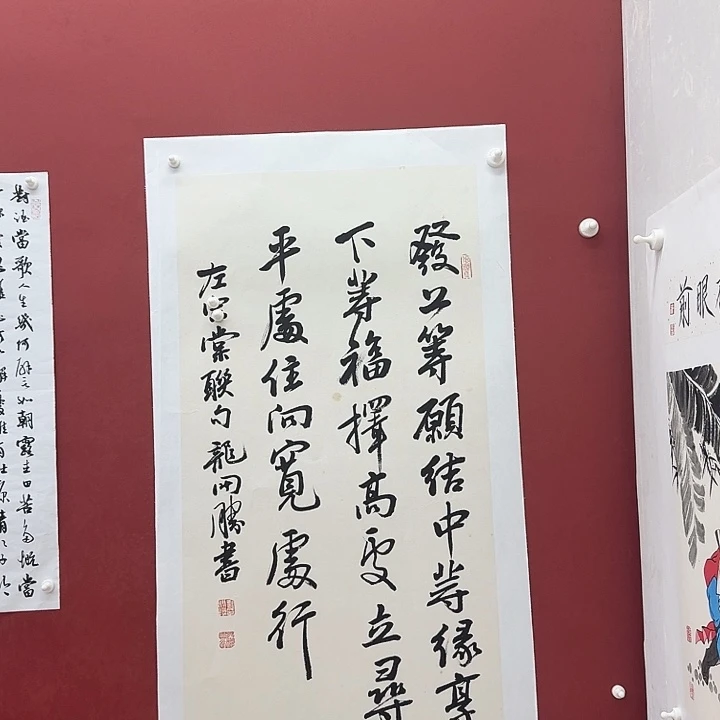 眼前
發上等願結中等緣享
下等福擇高處立尋
平處住向寬處行
左宗棠聯句龍開勝書
對酒當歌人生幾何譬如朝露去日苦多慨當
解憂唯有杜康青青子